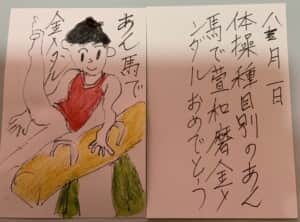 八月一日
体操種目別のあん
馬で萱和磨金メ
ダルおめでとう
あん馬で
金メダル